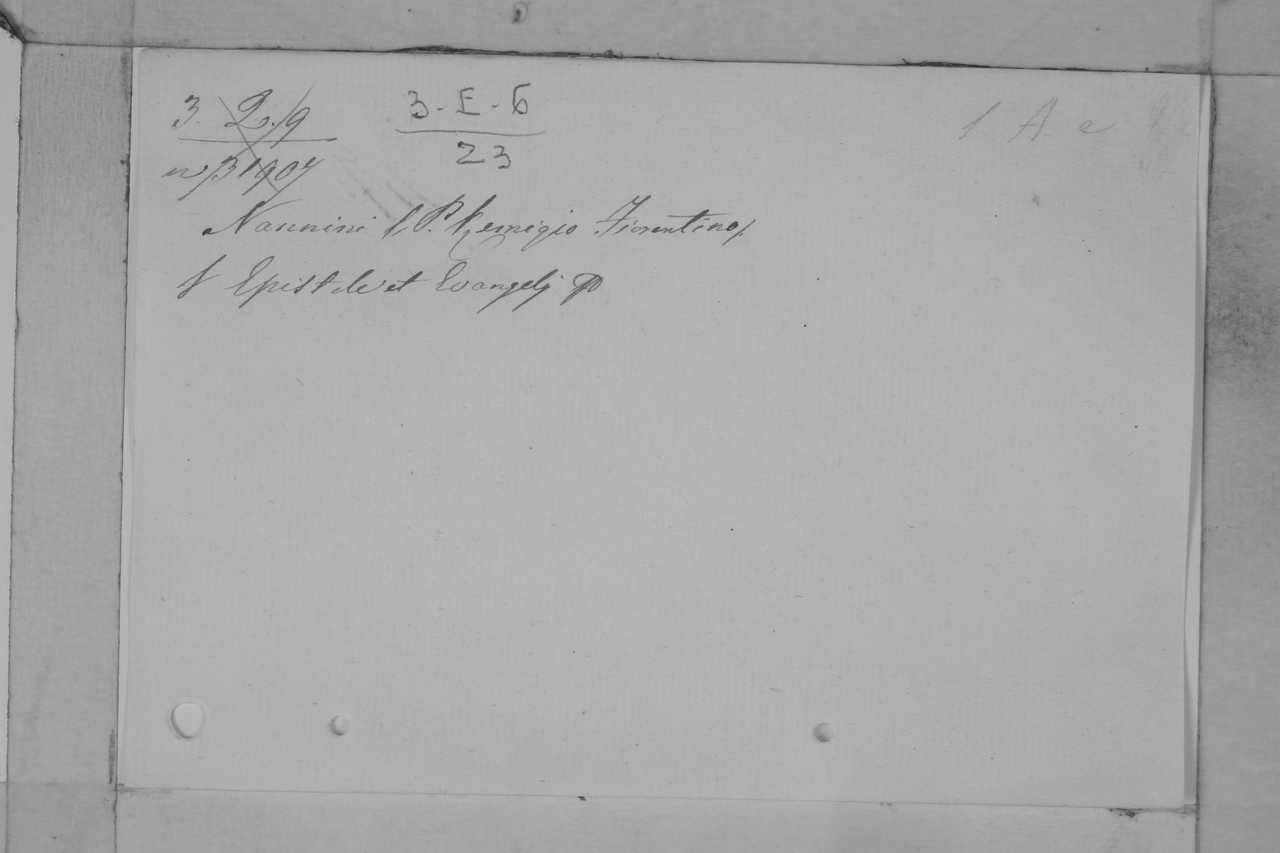 3. 2. 9
3-E-6
n 31907
23
1 A e
Nannini / P. Remigio Fiorentino /
Epistole et Evangelj